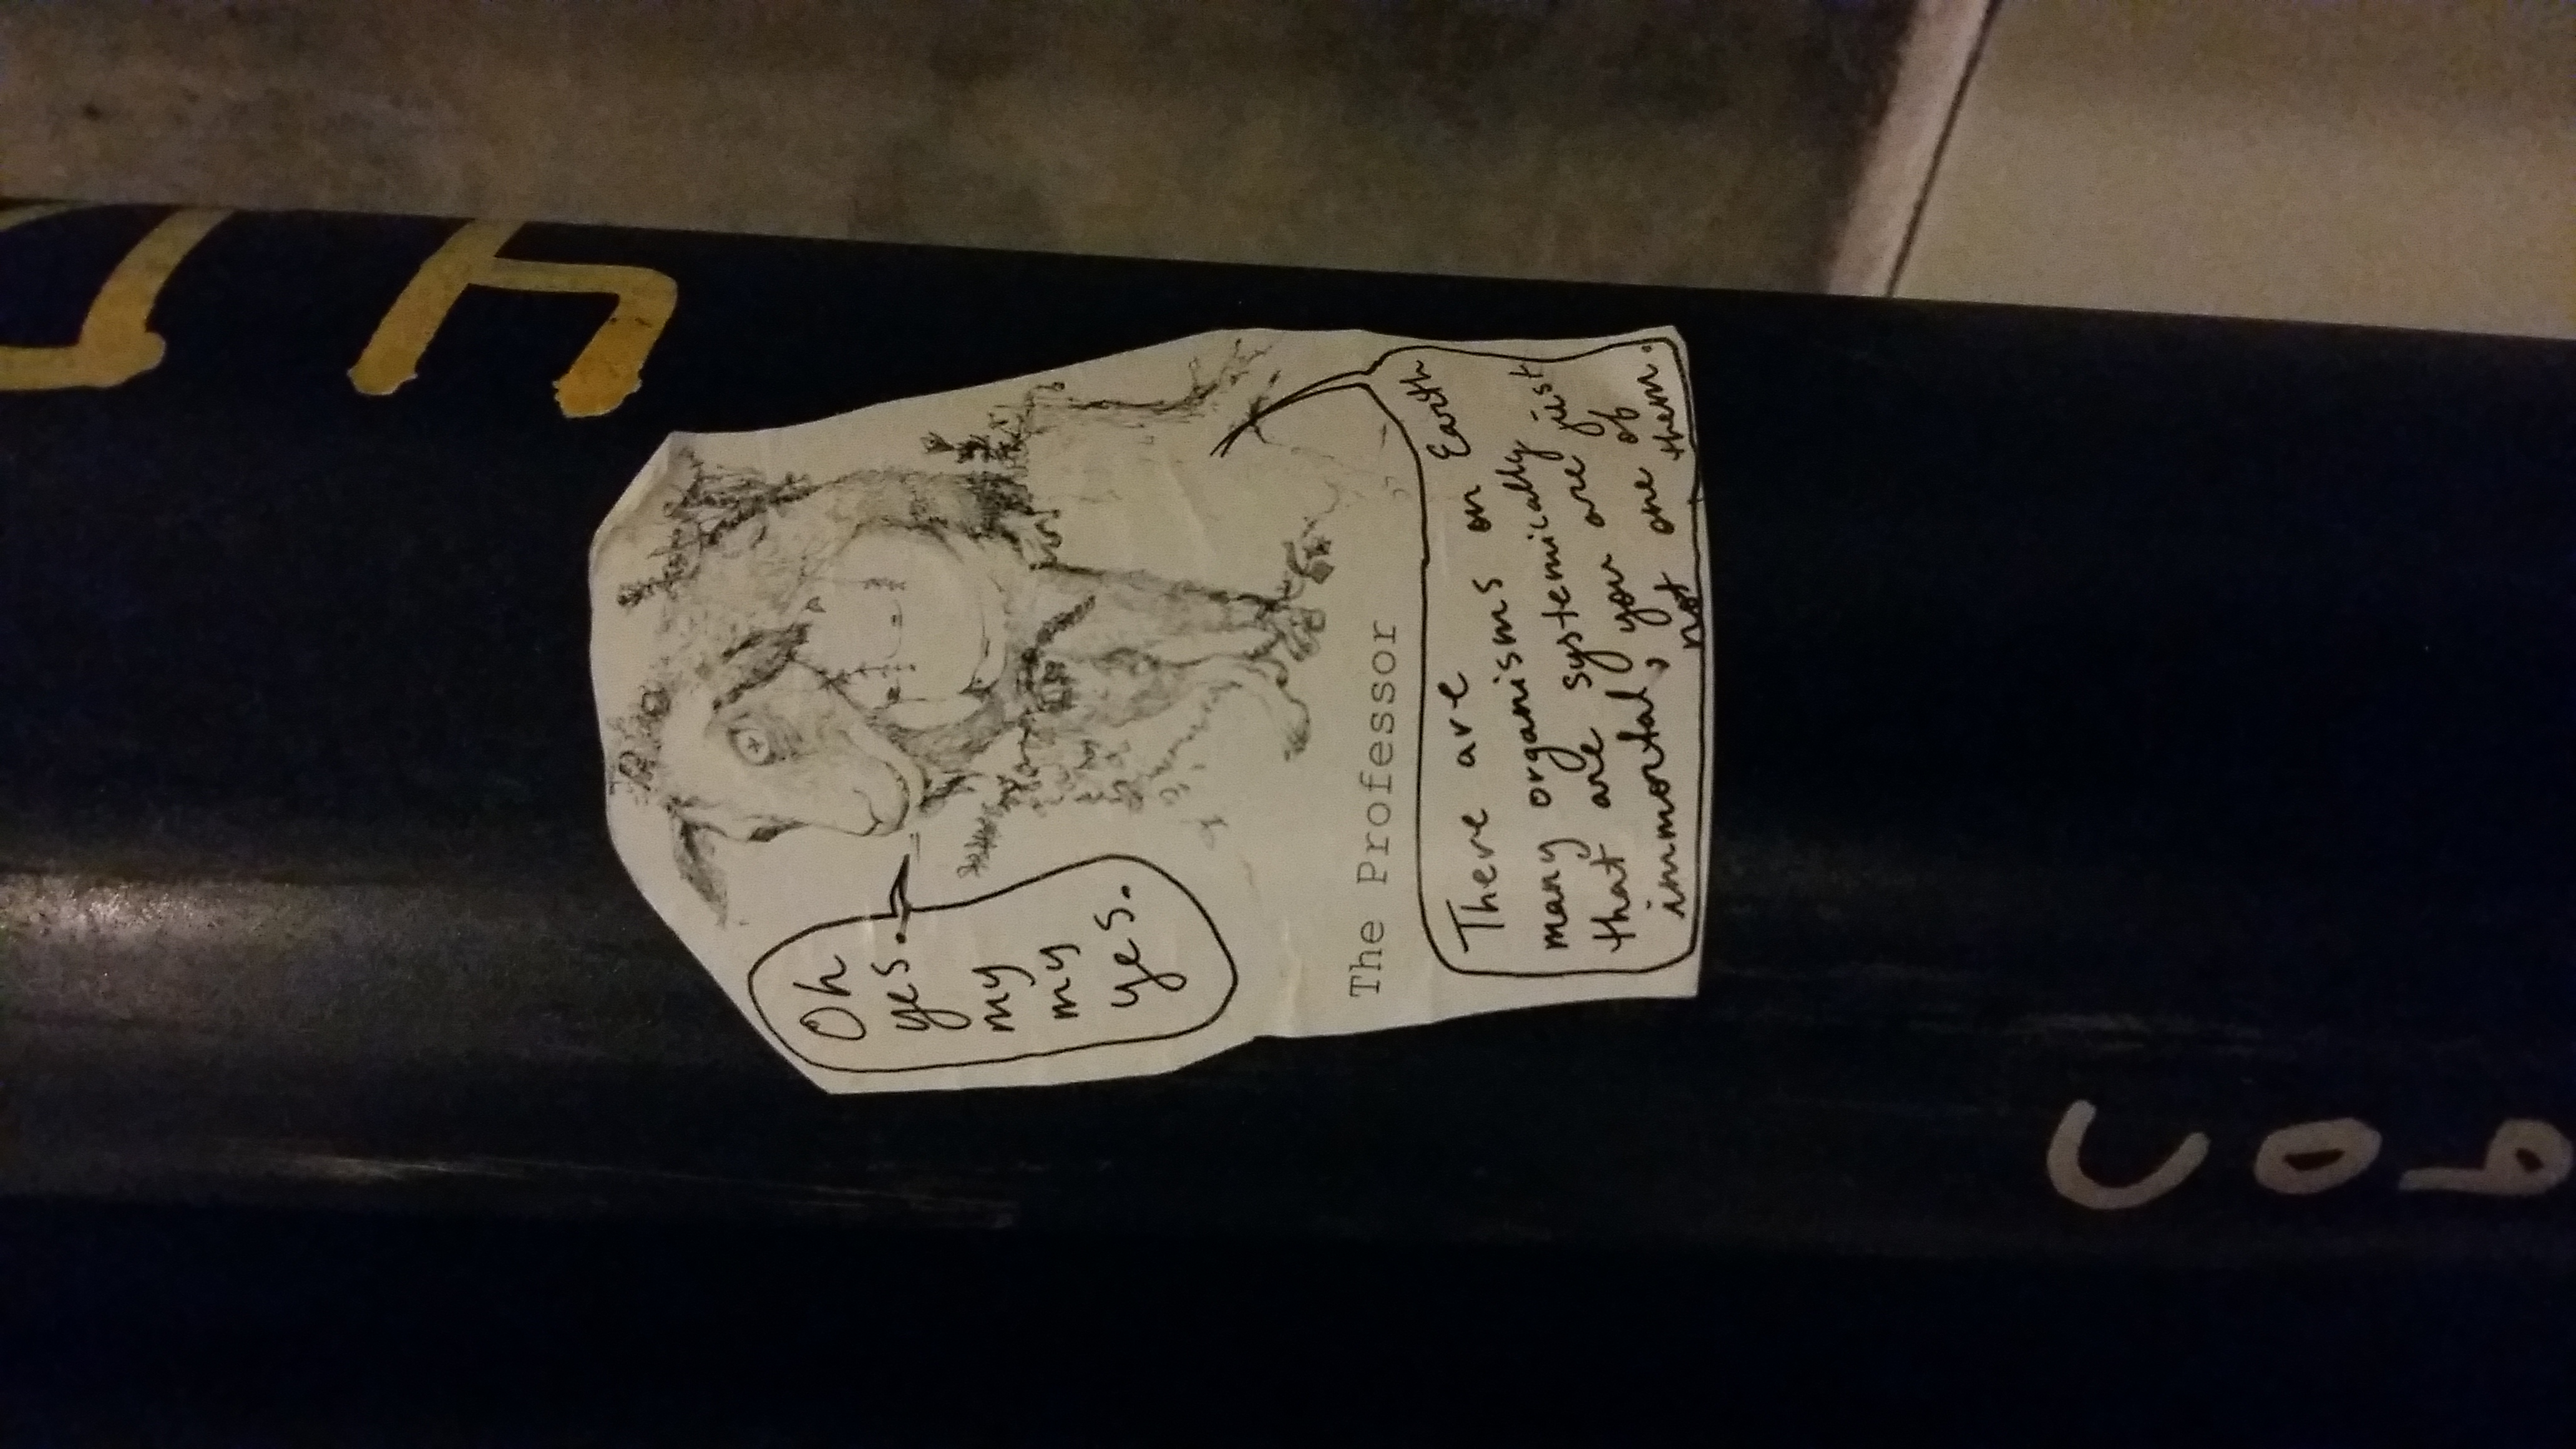 Oh
yes.
my
my
yes.
The Professor
There are
many organisms on Earth
that are systemically
immortal, you are just
not one of
them.
Cob